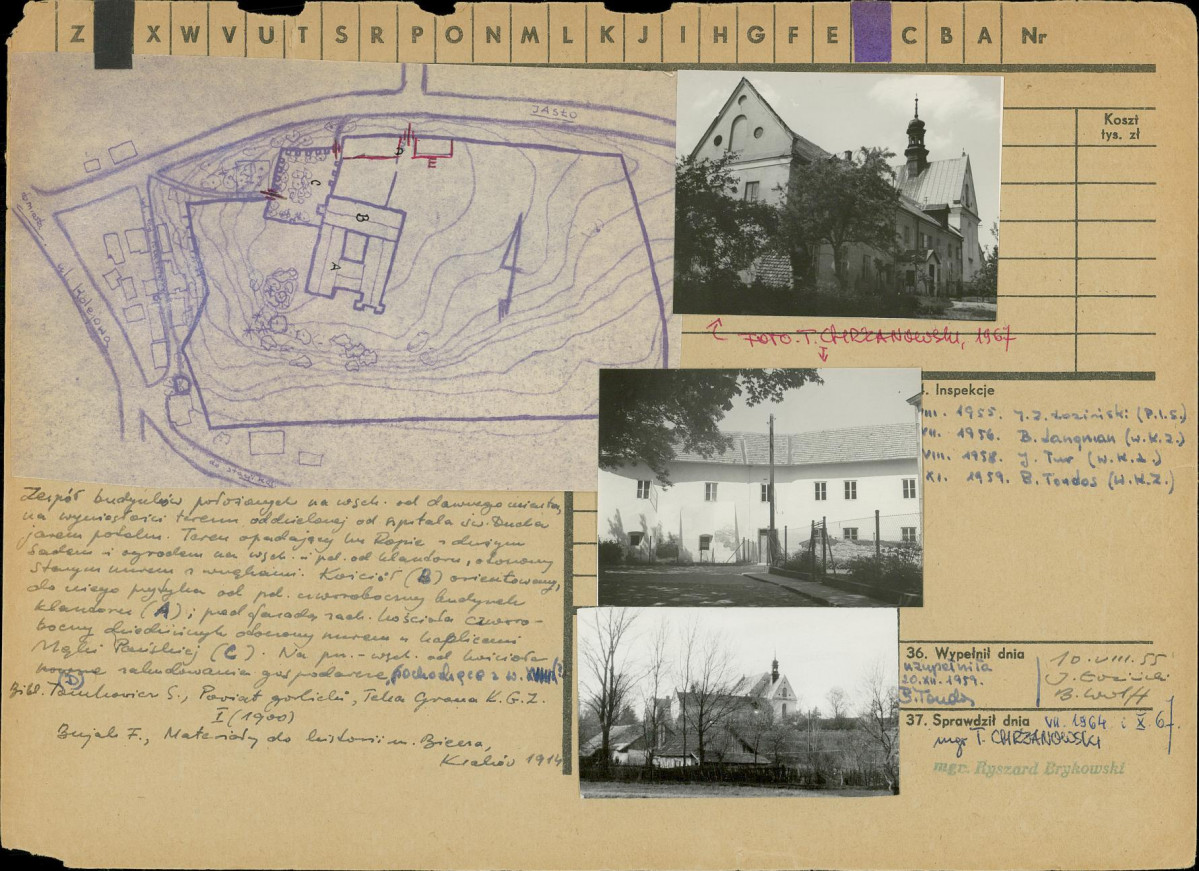 Z X W V U T S R P O N M L K J I H G F E C B A Nr
Koszt
tys. zł
JASŁO
ul. Kolejowa
A
B
C
D
E
FOTO. T. CHRZANOWSKI, 1967
Inspekcje
VIII. 1955. J. Z. Łoziński (P.I.S.)
VII. 1956. B. Langman (W.K.Z.)
VIII. 1958. J. Tur (W.K.Z.)
XI. 1959. B. Tondos (W.K.Z.)
Zespół budynków położonych na wsch. od dawnego miasta,
na wyniosłości terenu oddzielonej od szpitala św. Ducha
jarem potoku. Teren opadający ku Ropie z dużym
sadem i ogrodem na wsch. i pd. od klasztoru, otoczony
starym murem z wnękami. Kościół (B) orientowany,
do niego przytyka od pd. czworoboczny budynek
klasztoru (A); pod fasadą zach. kościoła czworo-
boczny dziedziniec otoczony murem z kaplicami
Męki Pańskiej (C). Na pn.-wsch. od kościoła
zabudowania gospodarcze, pochodzące z w.
(D)
Bibl. Tomkowicz S., Powiat gorlicki, Teka Grona K.G.Z.
I (1900)
Bujak F., Materiały do historii m. Biecza,
Kraków 1914
36. Wypełnił dnia
uzupełniła
20.XII.1959.
B. Tondos
10.VIII.55
J. Łoziński
B. Wolff
37. Sprawdził dnia VII. 1964 i X 67.
mgr T. CHRZANOWSKI
mgr. Ryszard Brykowski